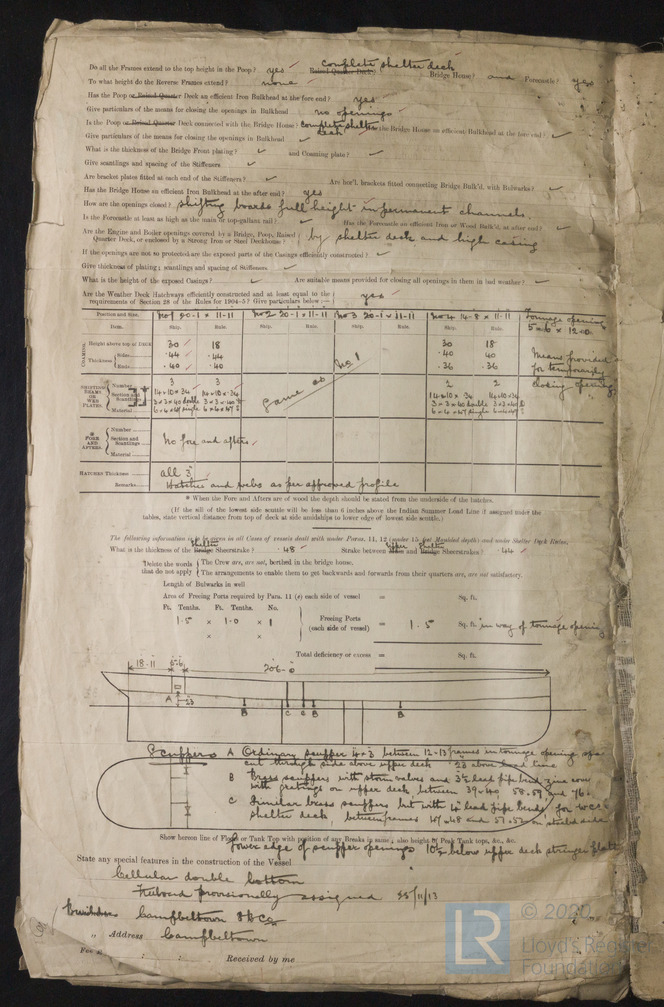 complete shelter deck
Do all the Frames extend to the top height in the Poop? yes Raised Quarter Deck? Bridge House? and Forecastle? yes
To what height do the Reverse Frames extend? none
Has the Poop or Raised Quarter Deck an efficient Iron Bulkhead at the fore end? yes
Give particulars of the means for closing the openings in Bulkhead no openings
Is the Poop or Raised Quarter Deck connected with the Bridge House? complete shelter deck Has the Bridge House an efficient Bulkhead at the fore end?
Give particulars of the means for closing the openings in Bulkhead
What is the thickness of the Bridge Front plating? and Coaming plate?
Give scantlings and spacing of the Stiffeners
Are bracket plates fitted at each end of the Stiffeners? Are hor'l. brackets fitted connecting Bridge Bulk'd. with Bulwarks?
Has the Bridge House an efficient Iron Bulkhead at the after end? yes
How are the openings closed? shifting boards full height in permanent channels.
Is the Forecastle at least as high as the main or top-gallant rail? Has the Forecastle an efficient Iron or Wood Bulk'd. at after end?
Are the Engine and Boiler openings covered by a Bridge, Poop, Raised Quarter Deck, or enclosed by a Strong Iron or Steel Deckhouse? by shelter deck and high casing
If the openings are not so protected are the exposed parts of the Casings efficiently constructed?
Give thickness of plating; scantlings and spacing of Stiffeners
What is the height of the exposed Casings? Are suitable means provided for closing all openings in them in bad weather?
Are the Weather Deck Hatchways efficiently constructed and at least equal to the requirements of Section 28 of the Rules for 1904-5? Give particulars below:— yes
Position and Size. No 1 20-1 x 11-11 No 2 20-1 x 11-11 No 3 20-1 x 11-11 No 4 14-8 x 11-11 Tonnage opening 5-6 x 12-0
Item. Ship. Rule. Ship. Rule. Ship. Rule. Ship. Rule.
COAMING Height above top of Deck 30 18 30 18
Thickness Sides .44 .44 .40 .40 Means provided
Ends .40 .40 .36 .36 for temporarily
SHIFTING BEAMS OR WEB PLATES Number 3 3 same as No 1 2 2 closing opening
Section and Scantlings
Material
FORE AND AFTERS Number
Section and Scantlings No fore and afters
Material
HATCHES Thickness all 3"
Remarks Hatches and webs as per approved profile
* When the Fore and Afters are of wood the depth should be stated from the underside of the hatches.
(If the sill of the lowest side scuttle will be less than 6 inches above the Indian Summer Load Line if assigned under the
tables, state vertical distance from top of deck at side amidships to lower edge of lowest side scuttle.)
The following information is to be given in all Cases of vessels dealt with under Paras. 11, 12 (under 15 feet Moulded depth) and under Shelter Deck Rules.
What is the thickness of the Bridge Shelter Sheerstrake? .48 Strake between Main Upper and Bridge Shelter Sheerstrakes? .44
Delete the words that do not apply { The Crew are, are not, berthed in the bridge house.
The arrangements to enable them to get backwards and forwards from their quarters are, are not satisfactory.
Length of Bulwarks in well
Area of Freeing Ports required by Para. 11 (e) each side of vessel = Sq. ft.
Ft. Tenths. Ft. Tenths. No.
1.5 x 1.0 x 1 Freeing Ports (each side of vessel) = 1.5 Sq. ft. in way of tonnage opening
x x
Total deficiency or excess = Sq. ft.
18-11 5-6 206-0
A 23 B C C B B
Scuppers A Ordinary scupper 4x3 between 12-13 frames in tonnage opening space
cut through side above upper deck 23 above load line
B Brass scuppers with storm valves and 3½ lead pipe bend, zinc cover
with gratings on upper deck between 39-40, 58-59 and 76-
C Similar brass scuppers but with 4" lead pipe bends for W.C.s
shelter deck, between frames 47-48 and 52-53
Show hereon line of Floor or Tank Top with position of any Breaks in same; also height of Peak Tank tops, &c., &c.
Lower edge of scupper openings 10½ below upper deck stringer plate
State any special features in the construction of the Vessel
Cellular double bottom
Freeboard provisionally assigned 25/11/13
Builders Campbeltown S B Co
" Address Campbeltown
Fee £ : : Received by me
LR © 2020
Lloyd's Register
Foundation